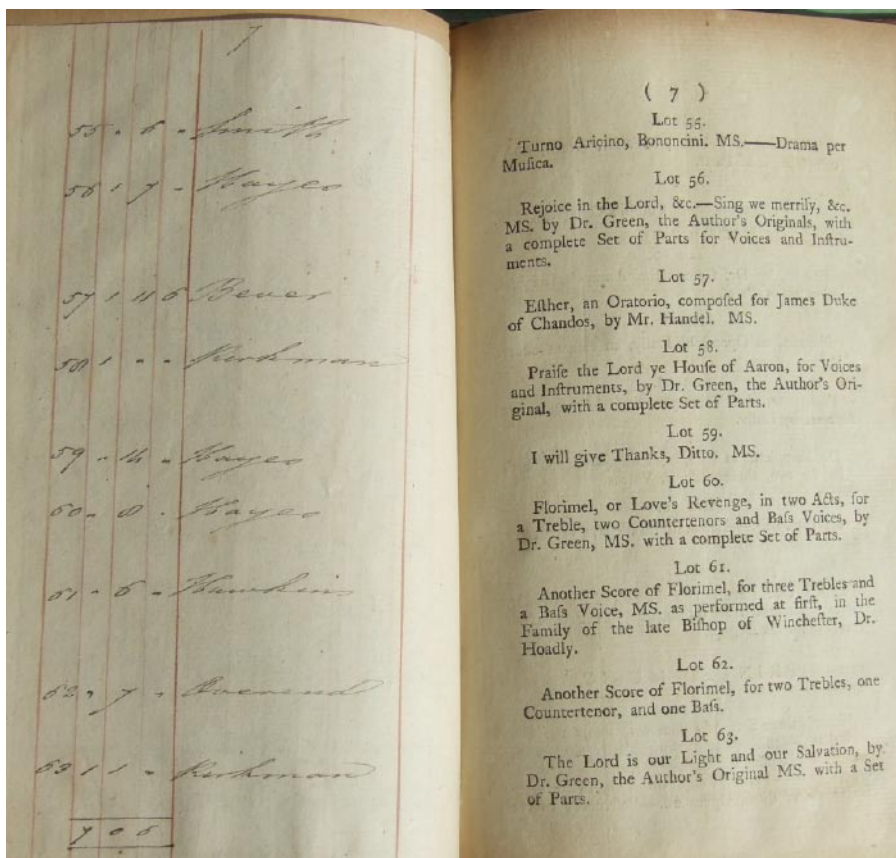 7
55 - 6 - Smith
56 1 7 - Hayes
57 1 11 6 Bever
58 1 - - Kirkman
59 - 14 - Hayes
60 - 8 - Hayes
61 - 6 - Hawkins
62 - 7 - Overend
63 1 1 - Kirkman
7 0 6
( 7 )
Lot 55.
Turno Aricino, Bononcini. MS.——Drama per
Muſica.
Lot 56.
Rejoice in the Lord, &c.—Sing we merrily, &c.
MS. by Dr. Green, the Author's Originals, with
a complete Set of Parts for Voices and Inſtru-
ments.
Lot 57.
Eſther, an Oratorio, compoſed for James Duke
of Chandos, by Mr. Handel. MS.
Lot 58.
Praiſe the Lord ye Houſe of Aaron, for Voices
and Inſtruments, by Dr. Green, the Author's Ori-
ginal, with a complete Set of Parts.
Lot 59.
I will give Thanks, Ditto. MS.
Lot 60.
Florimel, or Love's Revenge, in two Acts, for
a Treble, two Countertenors and Baſs Voices, by
Dr. Green, MS. with a complete Set of Parts.
Lot 61.
Another Score of Florimel, for three Trebles and
a Baſs Voice, MS. as performed at firſt, in the
Family of the late Biſhop of Wincheſter, Dr.
Hoadly.
Lot 62.
Another Score of Florimel, for two Trebles, one
Countertenor, and one Baſs.
Lot 63.
The Lord is our Light and our Salvation, by
Dr. Green, the Author's Original MS. with a Set
of Parts.